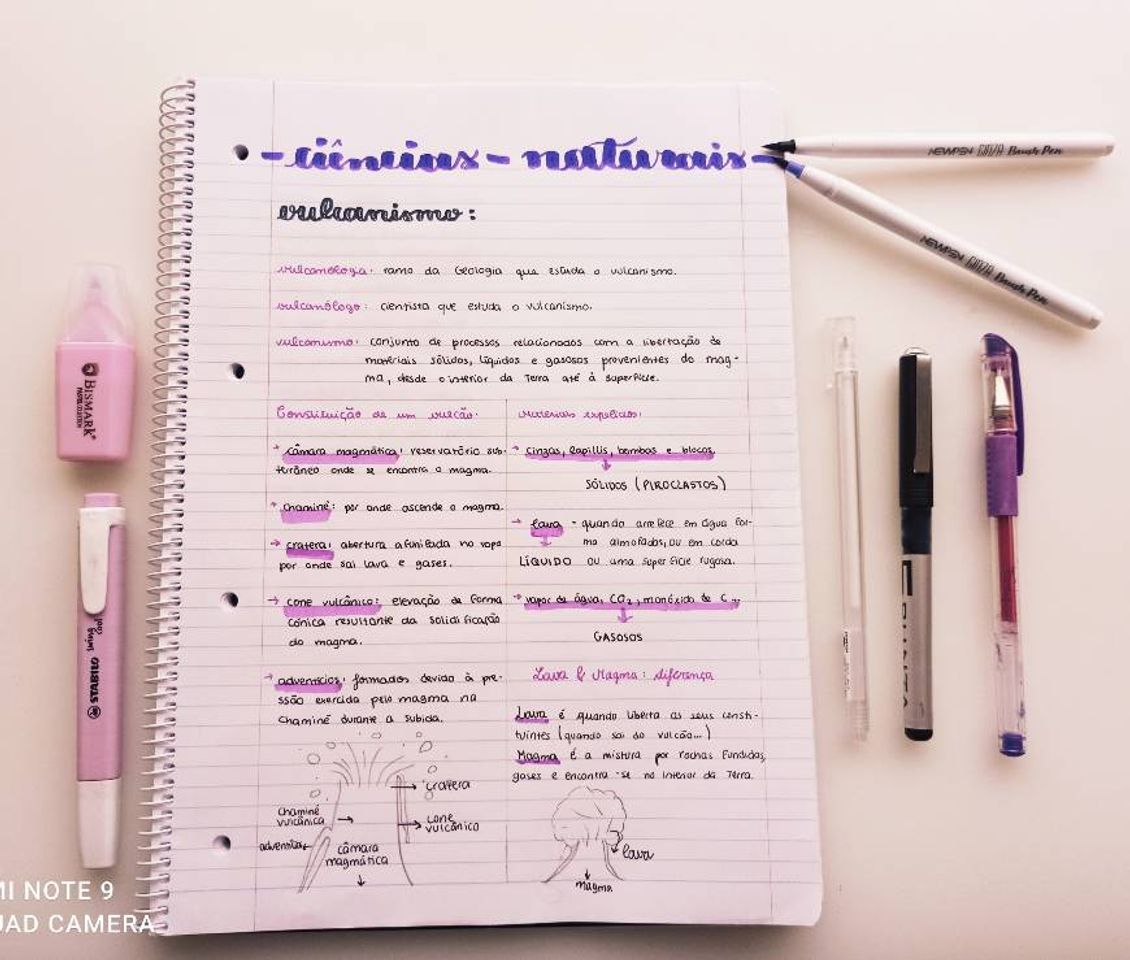 - ciências - naturais -
vulcanismo:
vulcanóloga: ramo da Geologia que estuda o vulcanismo.
vulcanólogo: cientista que estuda o vulcanismo.
vulcanismo: conjunto de processos relacionados com a libertação de
materiais sólidos, líquidos e gasosos provenientes do mag-
ma, desde o interior da Terra até à superfície.
Constituição de um vulcão:
→ câmara magmática: reservatório sub-
terrâneo onde se encontra o magma.
→ chaminé: por onde ascende o magma.
→ cratera: abertura afunilada no topo
por onde sai lava e gases.
→ cone vulcânico: elevação de forma
cónica resultante da solidificação
do magma.
→ adventícios: formados devido à pre-
ssão exercida pelo magma na
chaminé durante a subida.
cratera
chaminé
vulcânica
cone
vulcânico
câmara
magmática
materiais expelidos:
→ cinzas, lapillis, bombas e blocos
SÓLIDOS (PIROCLASTOS)
→ lava - quando arrefece em água for-
ma almofadas, ou em corda
LÍQUIDO ou uma superfície rugosa.
→ vapor de água, CO2, monóxido de C...
GASOSOS
Lava & Magma: diferença
Lava é quando liberta as seus consti-
tuintes (quando sai do vulcão...)
Magma é a mistura por rochas fundidas,
gases e encontra-se no interior da Terra.
lava
magma
NEWPEN Brush Pen
NEWPEN Brush Pen
BISMARK
STABILO
swing cool
MI NOTE 9
QUAD CAMERA